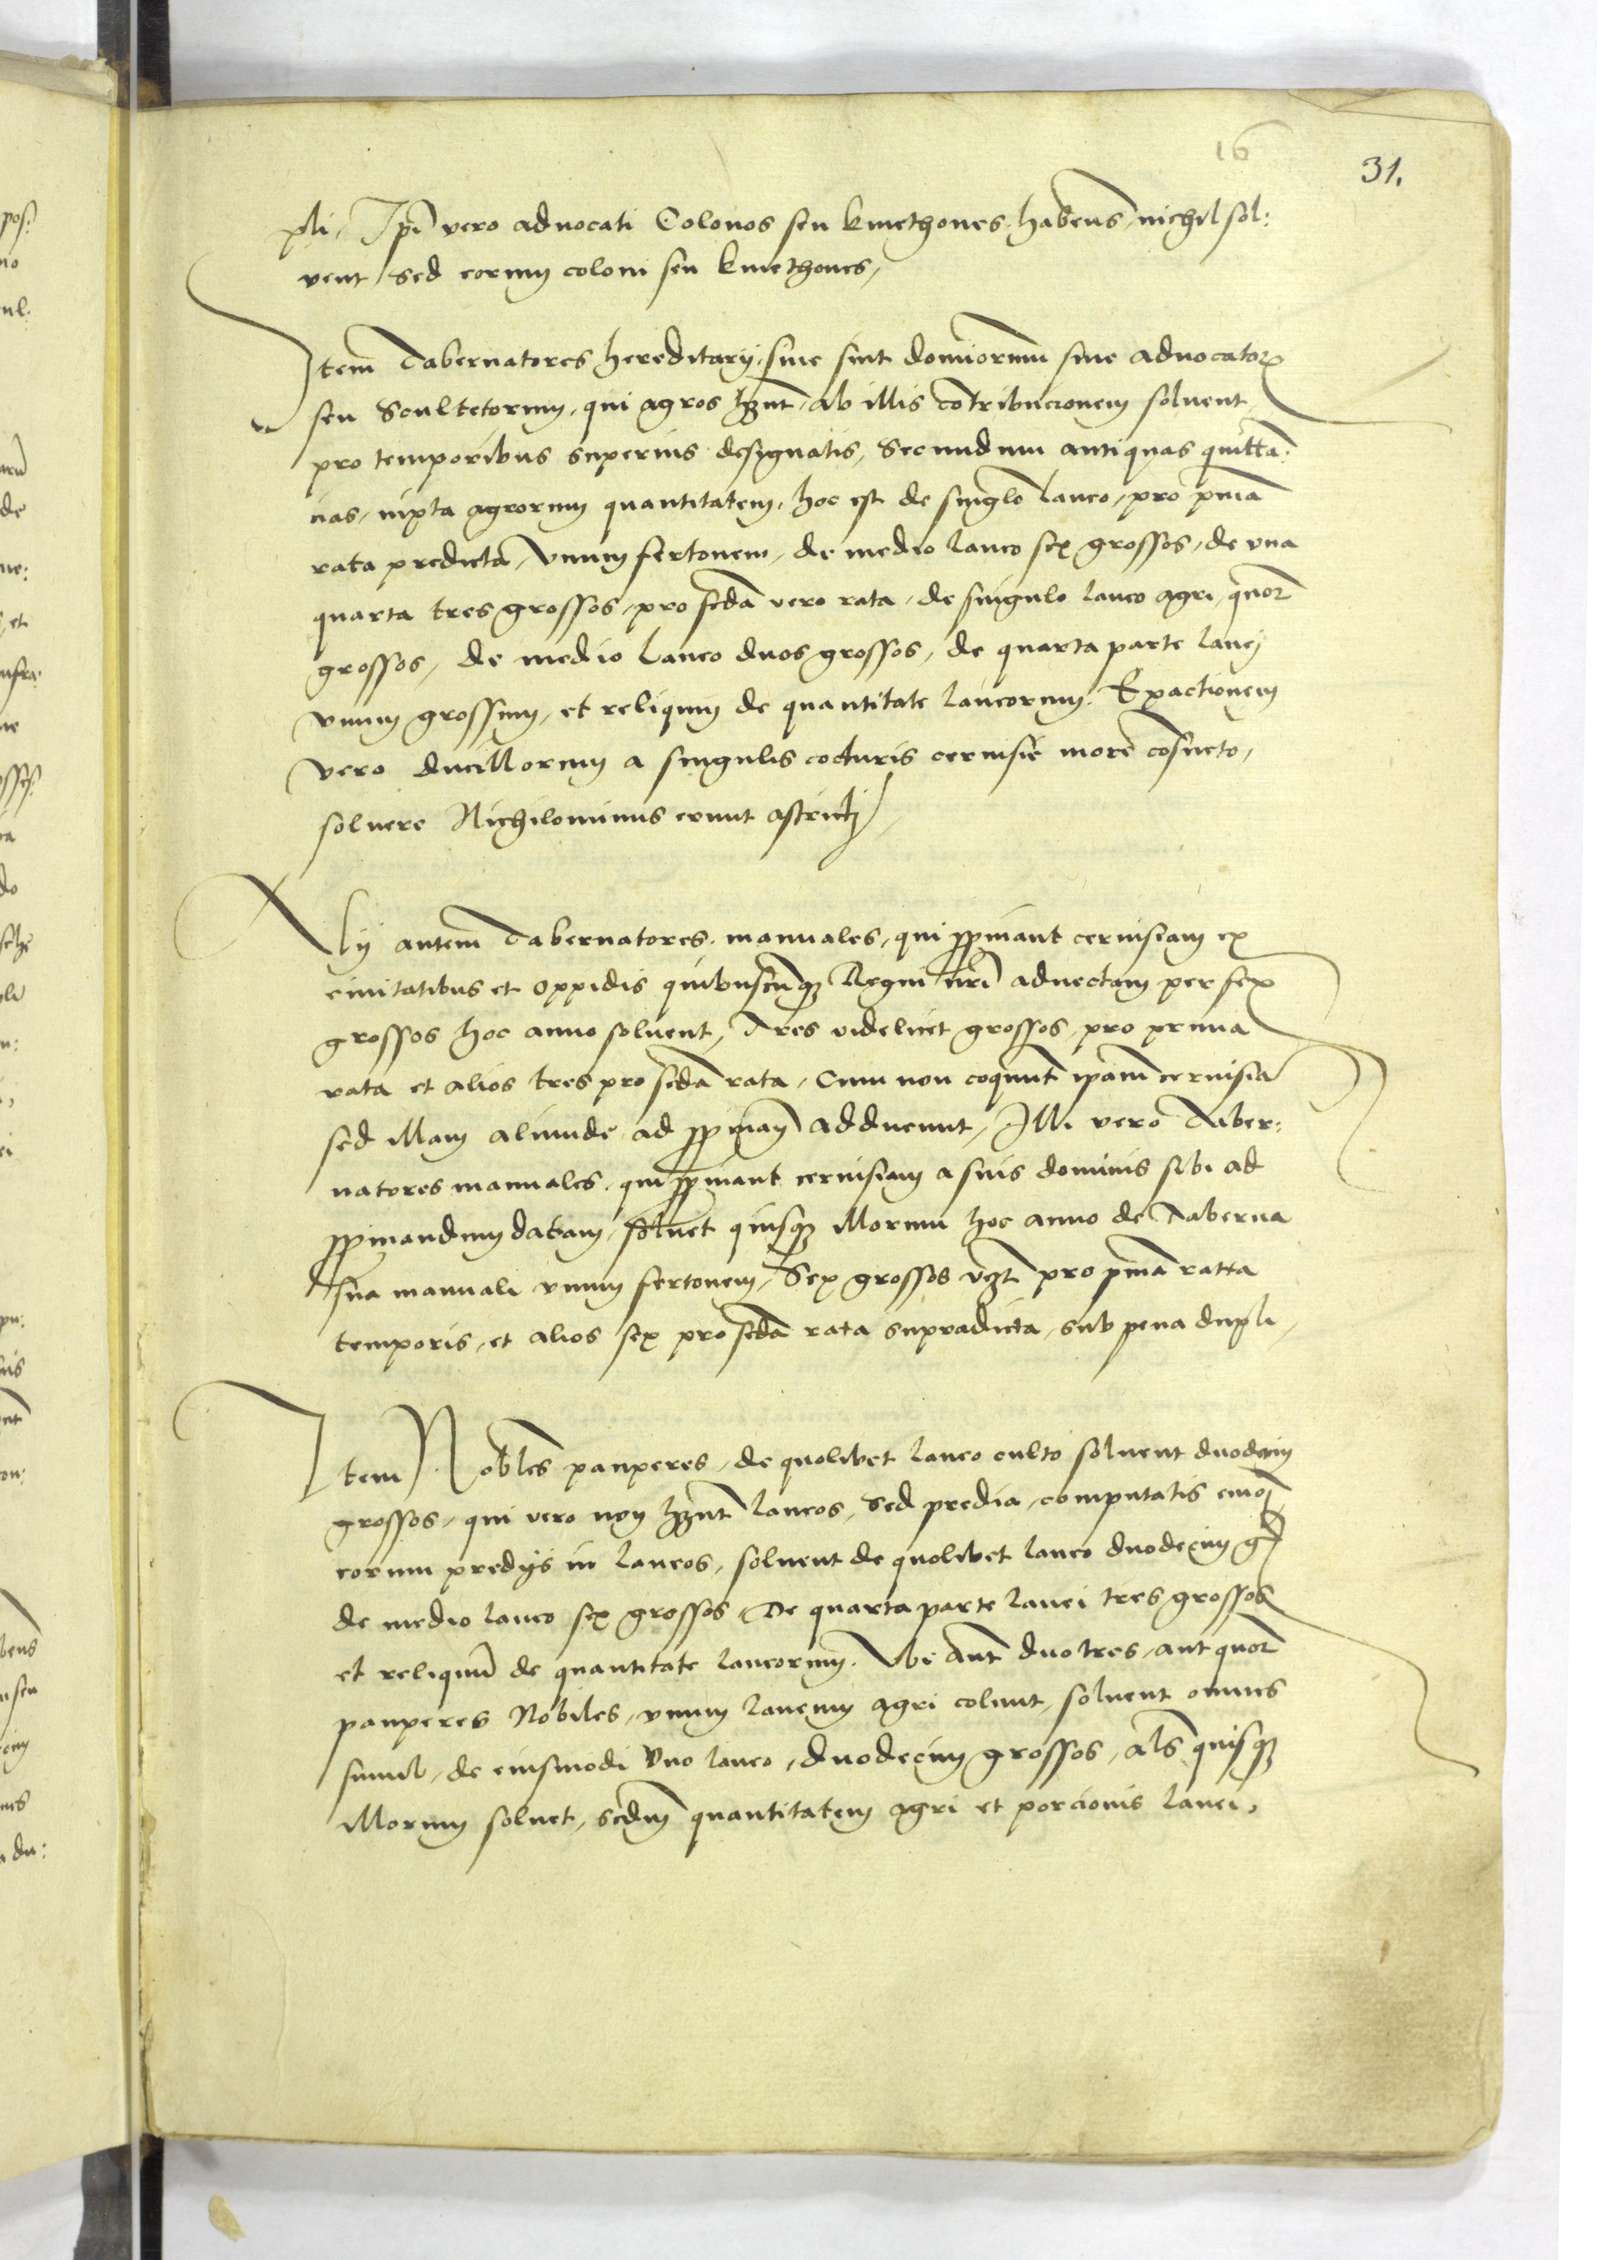 16
31.
pli, Ipi vero advocati Colonos seu kmethones habens, nichil sol:
vent, Sed eorum coloni seu kmethones,
Item Tabernatores hereditarij, siue sint dominorum siue aduocator
seu Scultetorum, qui agros hnt, ab illis contribucionem soluent
pro temporibus superius designatis, Secundum antiquas quitta:
cias, iuxta agrorum quantitatem, hoc est de singlo laneo, pro pma
rata predicta, vnum fertonem, de medio laneo sex grossos, de vna
quarta tres grossos, pro scda vero rata, de singulo laneo agri, quor
grossos, de medio laneo duos grossos, de quarta parte lanej
vnum grossum, et reliquum de quantitate laneorum. Exactionem
vero ducillorum a singulis cocturis ceruisie more cosueto,
soluere Nichilominus erunt astricti,
Alij autem Tabernatores manuales, qui ppinant ceruisiam ex
ciuitatibus et oppidis quibuscunq Regni nri aduectam per sex
grossos hoc anno soluent, Tres videlicet grossos, pro prima
rata et alios tres pro scda rata, Cum non coquunt ipam ceruisia
sed illam aliunde ad ppinam adducunt, Illi vero Taber:
natores manuales, qui ppinant ceruisiam a suis dominis sibi ad
ppinandum datam, soluet quisq illorum hoc anno de Taberna
sua manuali vnum fertonem, Sex grossos vzt pro pma ratta
temporis, et alios sex pro scda rata supradicta, sub pena dupli,
Item Nobles pauperes, de quolibet laneo culto soluent duodecim
grossos, qui vero non hnt laneos, Sed predia, computatis
eorum predijs in laneos, soluent de quolibet laneo duodecim g
de medio laneo sex grossos, De quarta parte lanei tres grossos
et reliquum de quantitate laneorum. Vbi aut duo tres, aut quor
pauperes Nobiles, vnum laneum agri colunt, soluent omnes
simul, de eiusmodi Vno laneo, duodecim grossos, als quisq
illorum soluet, scdm quantitatem agri et porcionis lanei,